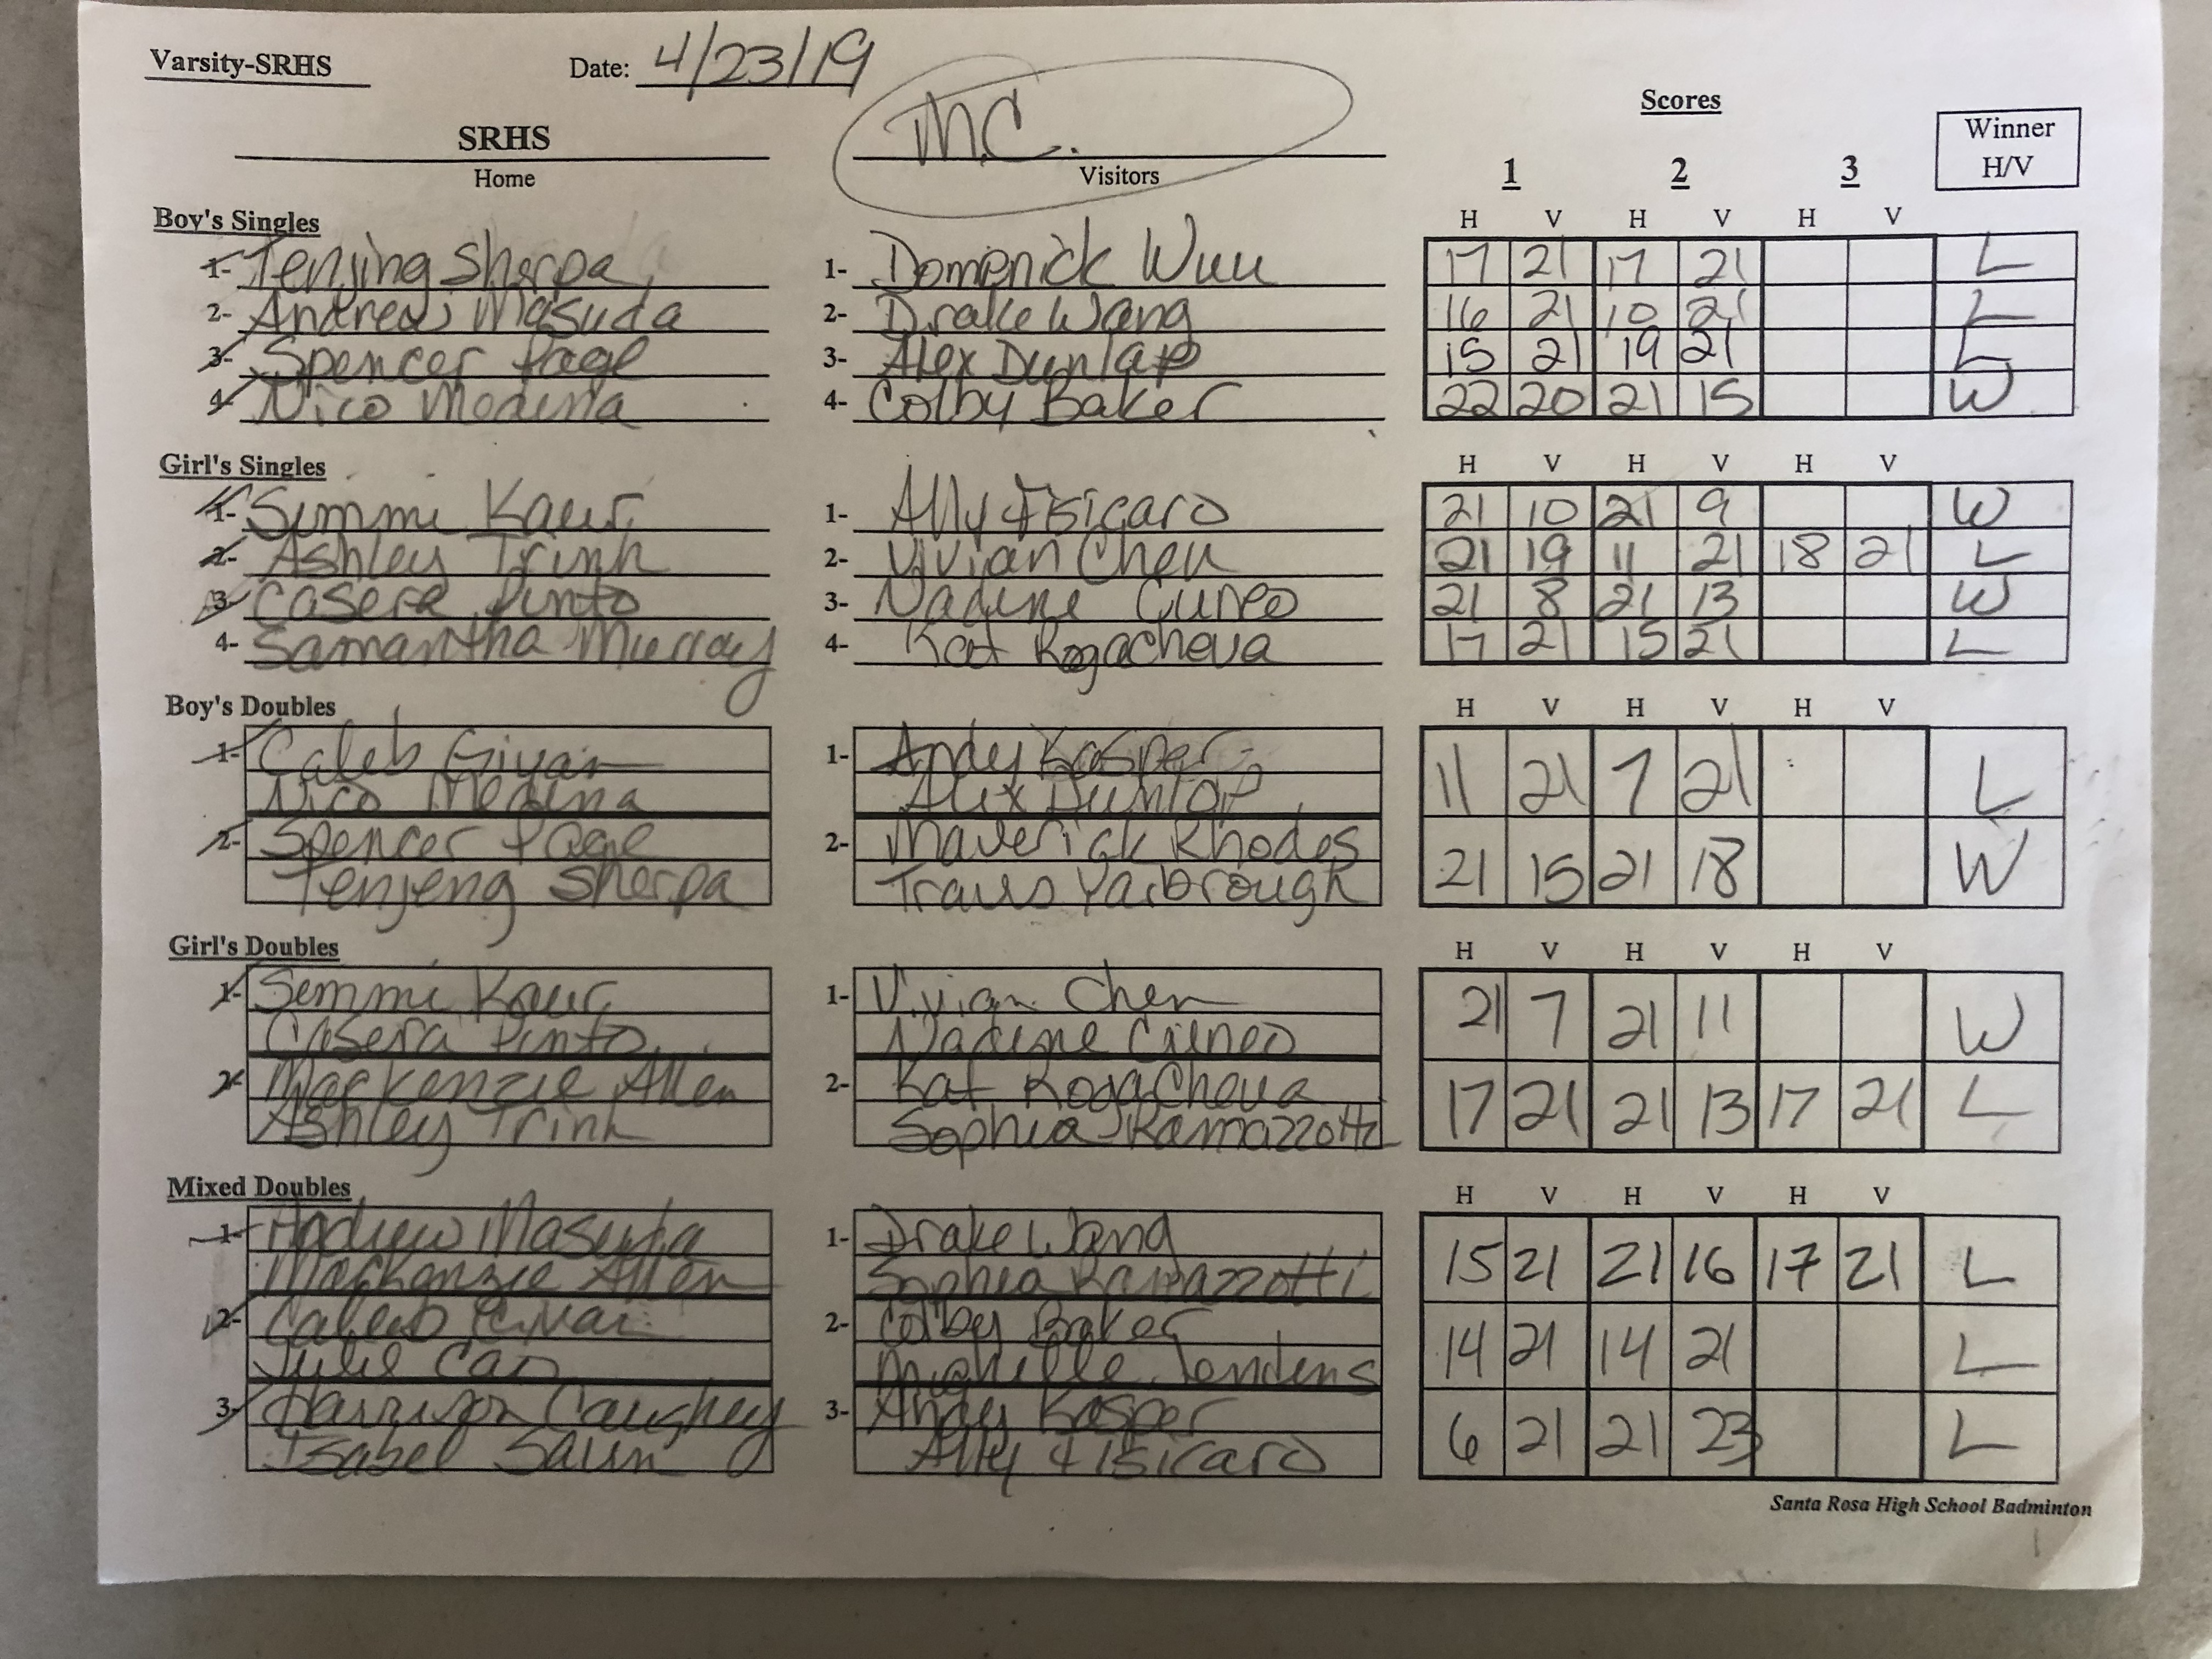 Varsity-SRHS Date: 4/23/19
Scores
SRHS M.C. Winner
Home Visitors 1 2 3 H/V
Boy's Singles H V H V H V
1- Tenjing Sherpa 1- Domenick Wuu 17 21 17 21 L
2- Andrew Masuda 2- Drake Wang 16 21 10 21 L
3- Spencer Page 3- Alex Dunlap 15 21 19 21 L
4- Nico Medina 4- Colby Baker 22 20 21 15 W
Girl's Singles H V H V H V
1- Simmi Kaur 1- Ally Fisicaro 21 10 21 9 W
2- Ashley Trinh 2- Vivian Chen 21 19 11 21 18 21 L
3- Casera Pinto 3- Nadine Cuneo 21 8 21 13 W
4- Samantha Murray 4- Kat Rogacheva 17 21 15 21 L
Boy's Doubles H V H V H V
1- Caleb 1- Andy Kasper 11 21 7 21 L
Nico Medina Alex Dunlap
2- Spencer Page 2- Maverick Rhodes 21 15 21 18 W
Tenjeng Sherpa Travis Yarbrough
Girl's Doubles H V H V H V
1- Semmi Kaur 1- Vivian Chen 21 7 21 11 W
Casera Pinto Nadine Cuneo
2- Mackenzie Allen 2- Kat Rogacheva 17 21 21 13 17 21 L
Ashley Trinh Sophia Ramazzotti
Mixed Doubles H V H V H V
1- Andrew Masuda 1- Drake Wang 15 21 21 16 17 21 L
Mackenzie Allen Sophia Ramazzotti
2- Caleb 2- Colby Baker 14 21 14 21 L
Julie Cao Michelle
3- Harrison Caughey 3- Andy Kasper 6 21 21 23 L
Isabel Ally Fisicaro
Santa Rosa High School Badminton